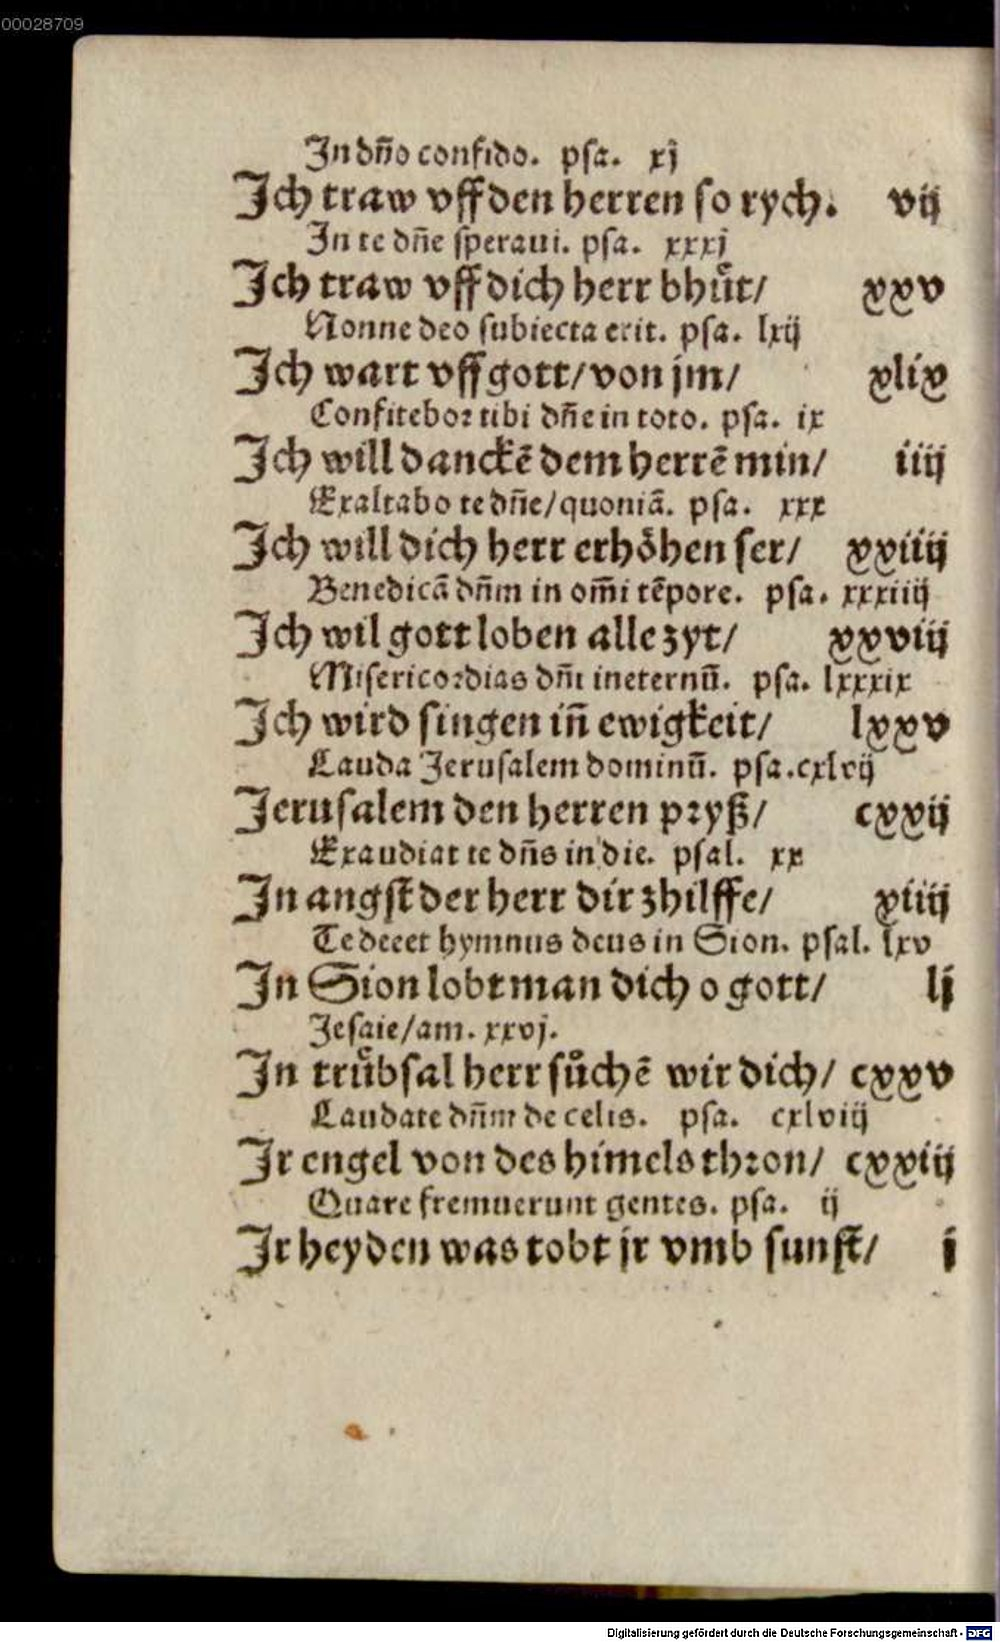 00028709
In dn̄o confido. psa. xj
Ich traw vff den herren so rych. vij
In te dn̄e speraui. psa. xxxj
Ich traw vff dich herr bhuͤt/ xxv
Nonne deo subiecta erit. psa. lxij
Ich wart vff gott/ von jm/ xlix
Confitebor tibi dn̄e in toto. psa. ix
Ich will danckē dem herrē min/ iiij
Exaltabo te dn̄e/ quoniā. psa. xxx
Ich will dich herr erhoͤhen ser/ xxiiij
Benedicā dn̄m in om̄i tēpore. psa. xxxiiij
Ich wil gott loben alle zyt/ xxviij
Misericordias dn̄i in eternū. psa. lxxxix
Ich wird singen in̄ ewigkeit/ lxxv
Lauda Jerusalem dominū. psa. cxlvij
Jerusalem den herren pryß/ cxxij
Exaudiat te dn̄s in die. psal. xx
In angst der herr dir zhilffe/ xiiij
Te decet hymnus deus in Sion. psal. lxv
In Sion lobt man dich o gott/ lj
Jesaie/ am. xxvj.
In truͤbsal herr suͦchē wir dich/ cxxv
Laudate dn̄m de celis. psa. cxlviij
Ir engel von des himels thron/ cxxiij
Quare fremuerunt gentes. psa. ij
Ir heyden was tobt jr vmb sunst/ j
Digitalisierung gefördert durch die Deutsche Forschungsgemeinschaft - DFG